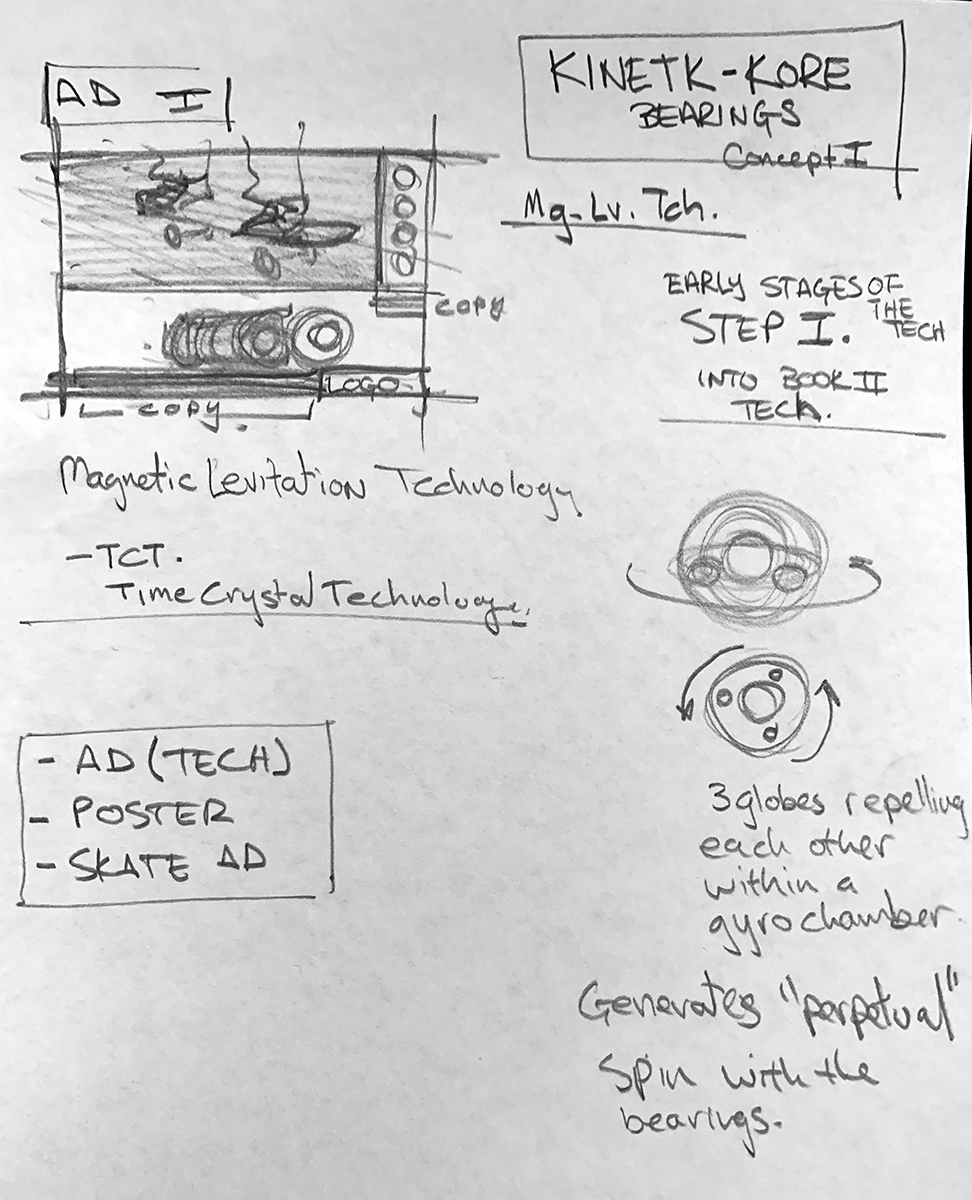 AD I
KINETK-KORE
BEARINGS
Concept I
Mg-Lv. Tch.
EARLY STAGES OF
THE
STEP I.
TECH
INTO BOOK II
TECH.
COPY
LOGO
COPY
Magnetic Levitation Technology
- TCT.
Time Crystal Technology.
- AD (TECH)
- POSTER
- SKATE AD
3 globes repelling
each other
within a
gyro chamber.
Generates "perpetual"
Spin with the
bearings.